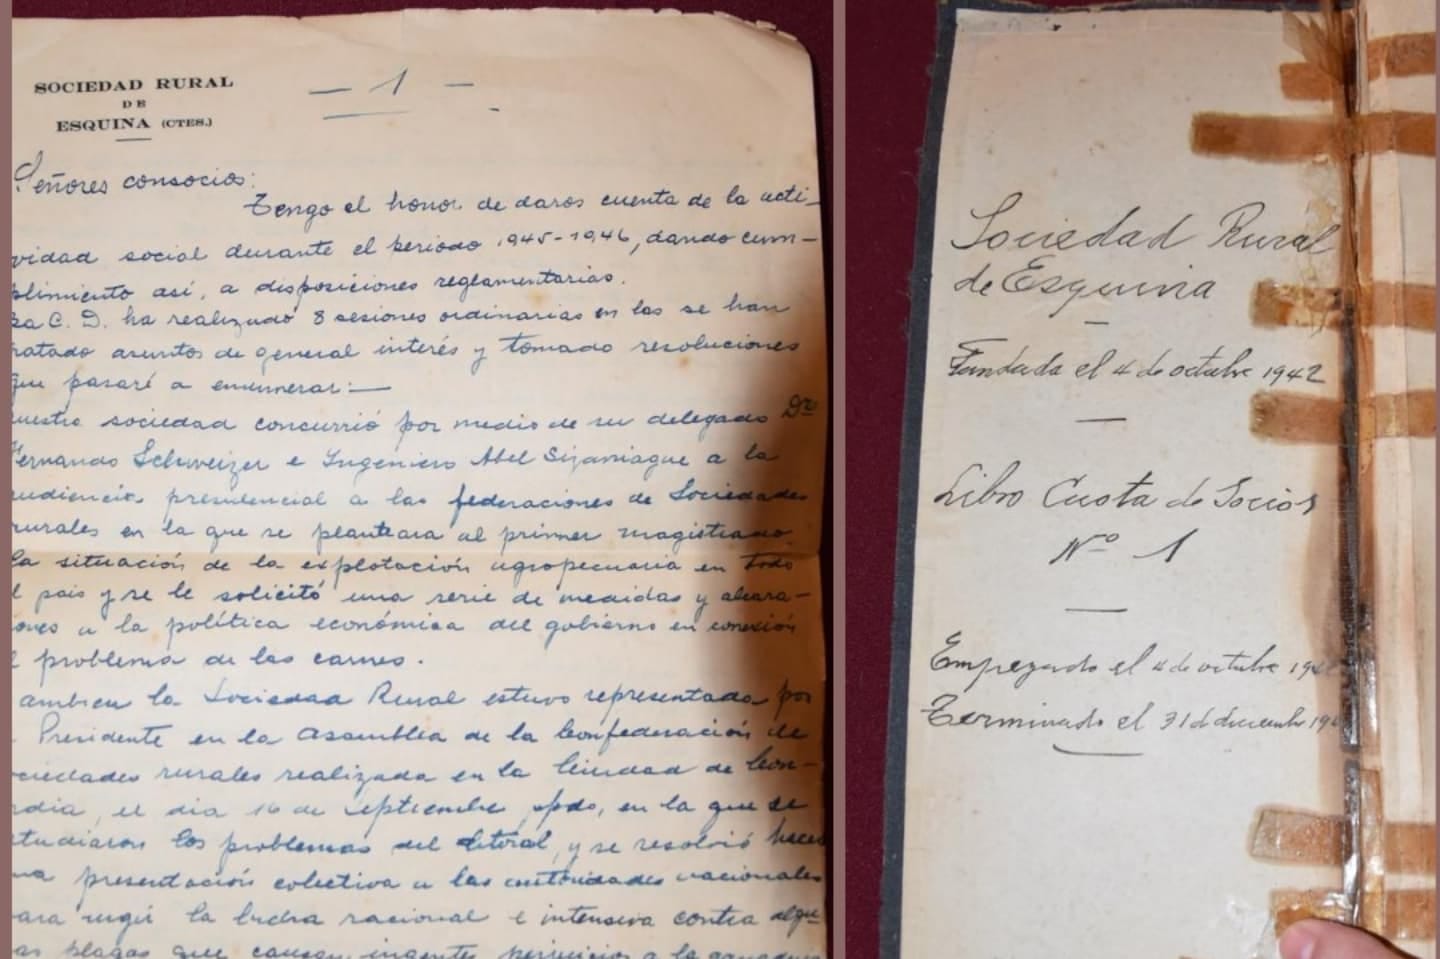 SOCIEDAD RURAL
DE
ESQUINA (CTES.)
— 1 —
Señores consocios:
Tengo el honor de daros cuenta de la acti-
vidad social durante el periodo 1945-1946, dando cum-
plimiento así, a disposiciones reglamentarias.
La C. D. ha realizado 8 sesiones ordinarias en las se han
tratado asuntos de general interés y tomado resoluciones
que pasaré a enumerar:—
uestra sociedad concurrió por medio de su delegado Dr
Fernando Schweizer e Ingeniero Abel a la
audiencia presidencial a las federaciones de Sociedades
rurales en la que se planteara al primer magistrado
la situación de la explotación agropecuaria en todo
l pais y se le solicitó una serie de medidas y aclara-
ones a la política económica del gobierno en conexión
l problema de las carnes.
ambien la Sociedad Rural estuvo representada por
Presidente en la asamblea de la Confederación de
ciedades rurales realizada en la Ciudad de Con-
rdia, el dia 16 de Septiembre ppdo, en la que se
studiaron los problemas del litoral, y se resolvió hacer
na presentación colectiva a las autoridades nacionales
ara la lucha racional e intensiva contra algu-
as plagas que causan ingentes perjuicios a la
Sociedad Rural
de Esquina
—
Fundada el 4 de octubre 1942
—
Libro Cuota de Socios
Nº 1
—
Empezado el 4 de octubre 194
Terminado el 31 de diciembre 19